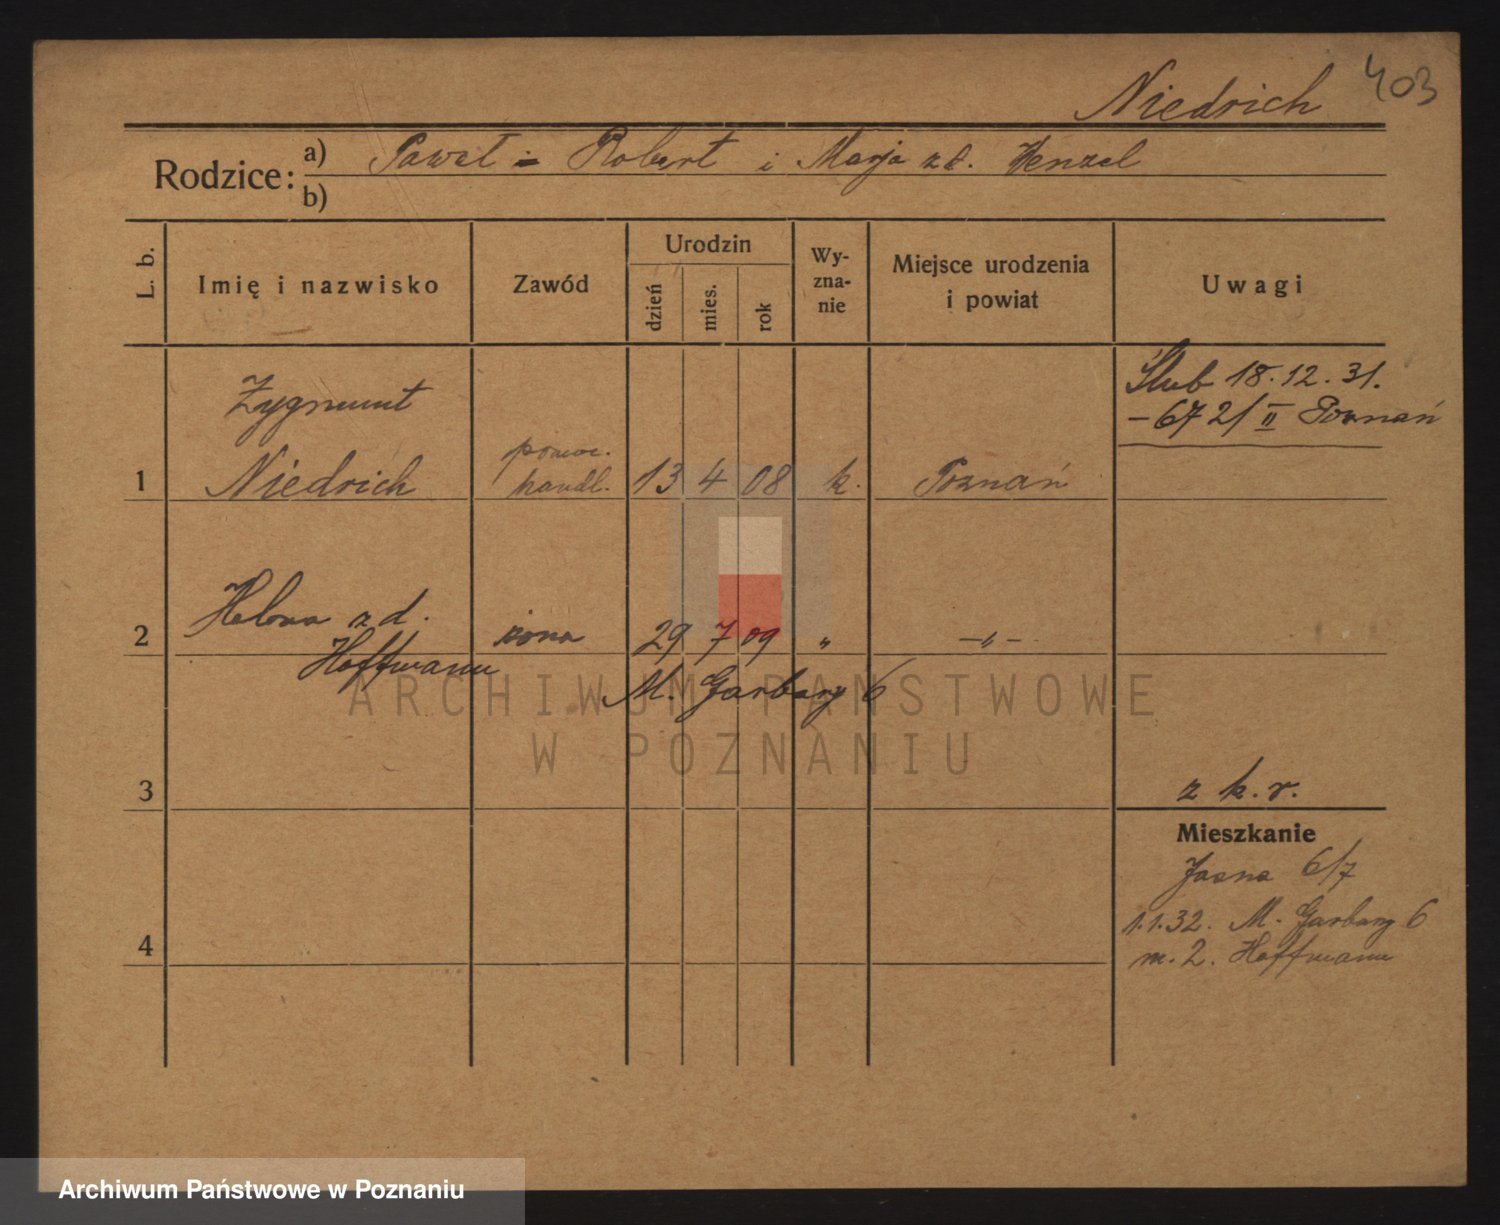 Niedrich 403
Rodzice: a) Paweł - Robert i Marja z d. Henzel
b)
L. b. Imię i nazwisko Zawód Urodzin dzień mies. rok Wy-zna-nie Miejsce urodzenia i powiat Uwagi
Ślub 18.12.31.
- 672/II Poznań
Zygmunt
1 Niedrich pomoc. handl. 13 4 08 k. Poznań
2 Helena z d. Hoffmann żona 29 7 09 " -"-
M. Garbary 6
ARCHIWUM PAŃSTWOWE
W POZNANIU
3 z k. r.
Mieszkanie
Jasna 6/7
1.1.32. M. Garbary 6
m. 2. Hoffmann
4
Archiwum Państwowe w Poznaniu